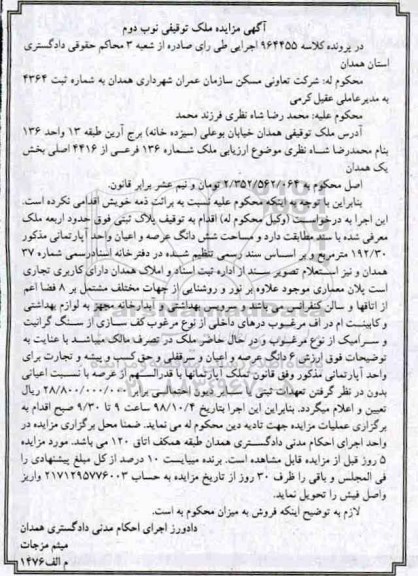 آگهی مزایده ملک توقیفی نوبت دوم
در پرونده کلاسه ۹۶۴۴۵۵ اجرایی طی رای صادره از شعبه ۳ محاکم حقوقی دادگستری
استان همدان
محکوم له: شرکت تعاونی مسکن سازمان عمران شهرداری همدان به شماره ثبت ۴۳۶۴
به مدیرعاملی عقیل کرمی
محکوم علیه: محمد رضا شاه نظری فرزند محمد
آدرس ملک توقیفی همدان خیابان بوعلی (سیزده خانه) برج آرین طبقه ۱۳ واحد ۱۳۶
بنام محمدرضا شاه نظری موضوع ارزیابی ملک شماره ۱۳۶ فرعی از ۴۴۱۶ اصلی بخش
یک همدان
اصل محکوم به ۲/۳۵۲/۵۶۲/۰۶۳ تومان و نیم عشر برابر قانون.
بنابراین با توجه به اینکه محکوم علیه نسبت به برائت ذمه خویش اقدامی نکرده است.
این اجرا به درخواست (وکیل محکوم له) اقدام به توقیف پلاک ثبتی فوق حدود اربعه ملک
معرفی شده با سند مطابقت دارد و مساحت شش دانگ عرصه و اعیان واحد آپارتمانی مذکور
۱۹۲/۳۰ مترمربع و بر اساس سند رسمی تنظیم شده در دفترخانه اسنادرسمی شماره ۳۷
همدان و نیز استعلام تصویر سند از اداره ثبت اسناد و املاک همدان دارای کاربری تجاری
است پلان معماری موجود علاوه بر نور و روشنایی از جهات مختلف مشتمل بر ۸ فضا اعم
از اتاقها و سالن کنفرانس می باشد و سرویس بهداشتی و آبدارخانه مجهز به لوازم بهداشتی
و کابینت ام در اف مرغوب درهای داخلی از نوع مرغوب کف سازی از سنگ گرانیت
و سرامیک از نوع مرغوب و در حال حاضر ملک در تصرف مالک میباشد با عنایت به
توضیحات فوق ارزش ۶ دانگ عرصه و اعیان و سرقفلی و حق کسب و پیشه و تجارت برای
واحد آپارتمانی مذکور وفق قانون تملک آپارتمانها با قدرالسهم از عرصه با نسبت اعیانی
بدون در نظر گرفتن تعهدات ثبتی یا سایر دیون احتمالی برابر ۲۸/۸۰۰/۰۰۰/۰۰۰ ریال
تعیین و اعلام میگردد. بنابراین این اجرا بتاریخ ۹۸/۱۰/۴ ساعت ۹ تا ۹/۳۰ صبح اقدام به
برگزاری عملیات مزایده جهت تادیه دین محکوم له می نماید. ضمنا محل برگزاری مزایده در
واحد اجرای احکام مدنی دادگستری همدان طبقه همکف اتاق ۱۲۰ می باشد. مورد مزایده
۵ روز قبل از مزایده قابل مشاهده است. برنده میبایست ۱۰ درصد از کل مبلغ پیشنهادی را
فی المجلس و باقی را ظرف ۳۰ روز از تاریخ مزایده به حساب ۲۱۷۱۲۹۵۷۷۶۰۰۳ واریز
واصل فیش را تحویل نماید.
لازم به توضیح اینکه فروش به میزان محکوم به است.
دادورز اجرای احکام مدنی دادگستری همدان
میثم مزجات
م الف ۱۴۷۶